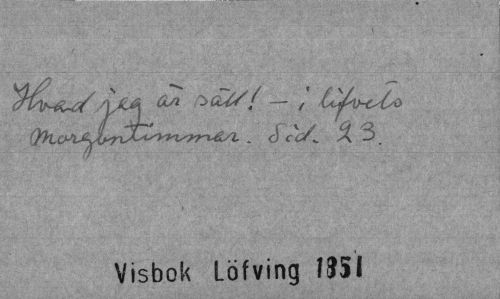 Hvad jag är säll! - i lifvets
morgontimmar. Sid. 23.
Visbok Löfving 1851